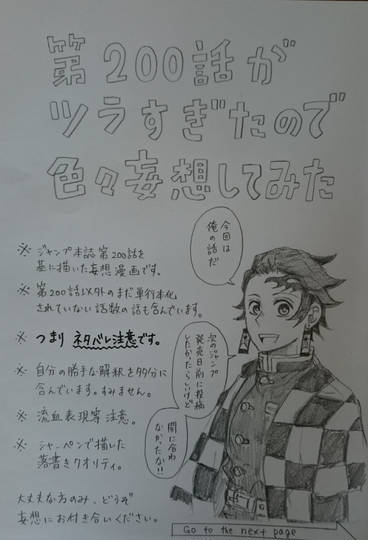 第200話が
ツラすぎたので
色々妄想してみた
今回は
俺の話だ
※ ジャンプ本誌第200話を
基に描いた妄想漫画です。
※ 第200話以外のまだ単行本化
されていない話数の話も含んでいます。
※ つまり ネタバレ注意です。
※ 自分の勝手な解釈を多分に
含んでいます。すみません。
※ 流血表現等注意。
※ シャーペンで描いた
落書きクオリティ。
大丈夫な方のみ、どうぞ
妄想にお付き合いください。
次のジャンプ
発売日前に投稿
したかったらしいけど
間に合わ
なかったな!!
Go to the next page